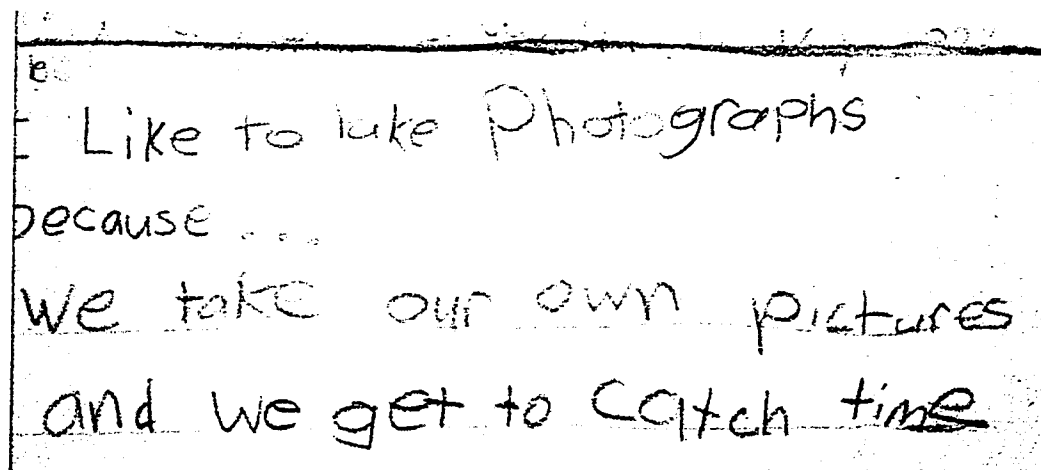 Like to take Photographs
because...
We take our own pictures
and we get to Catch time